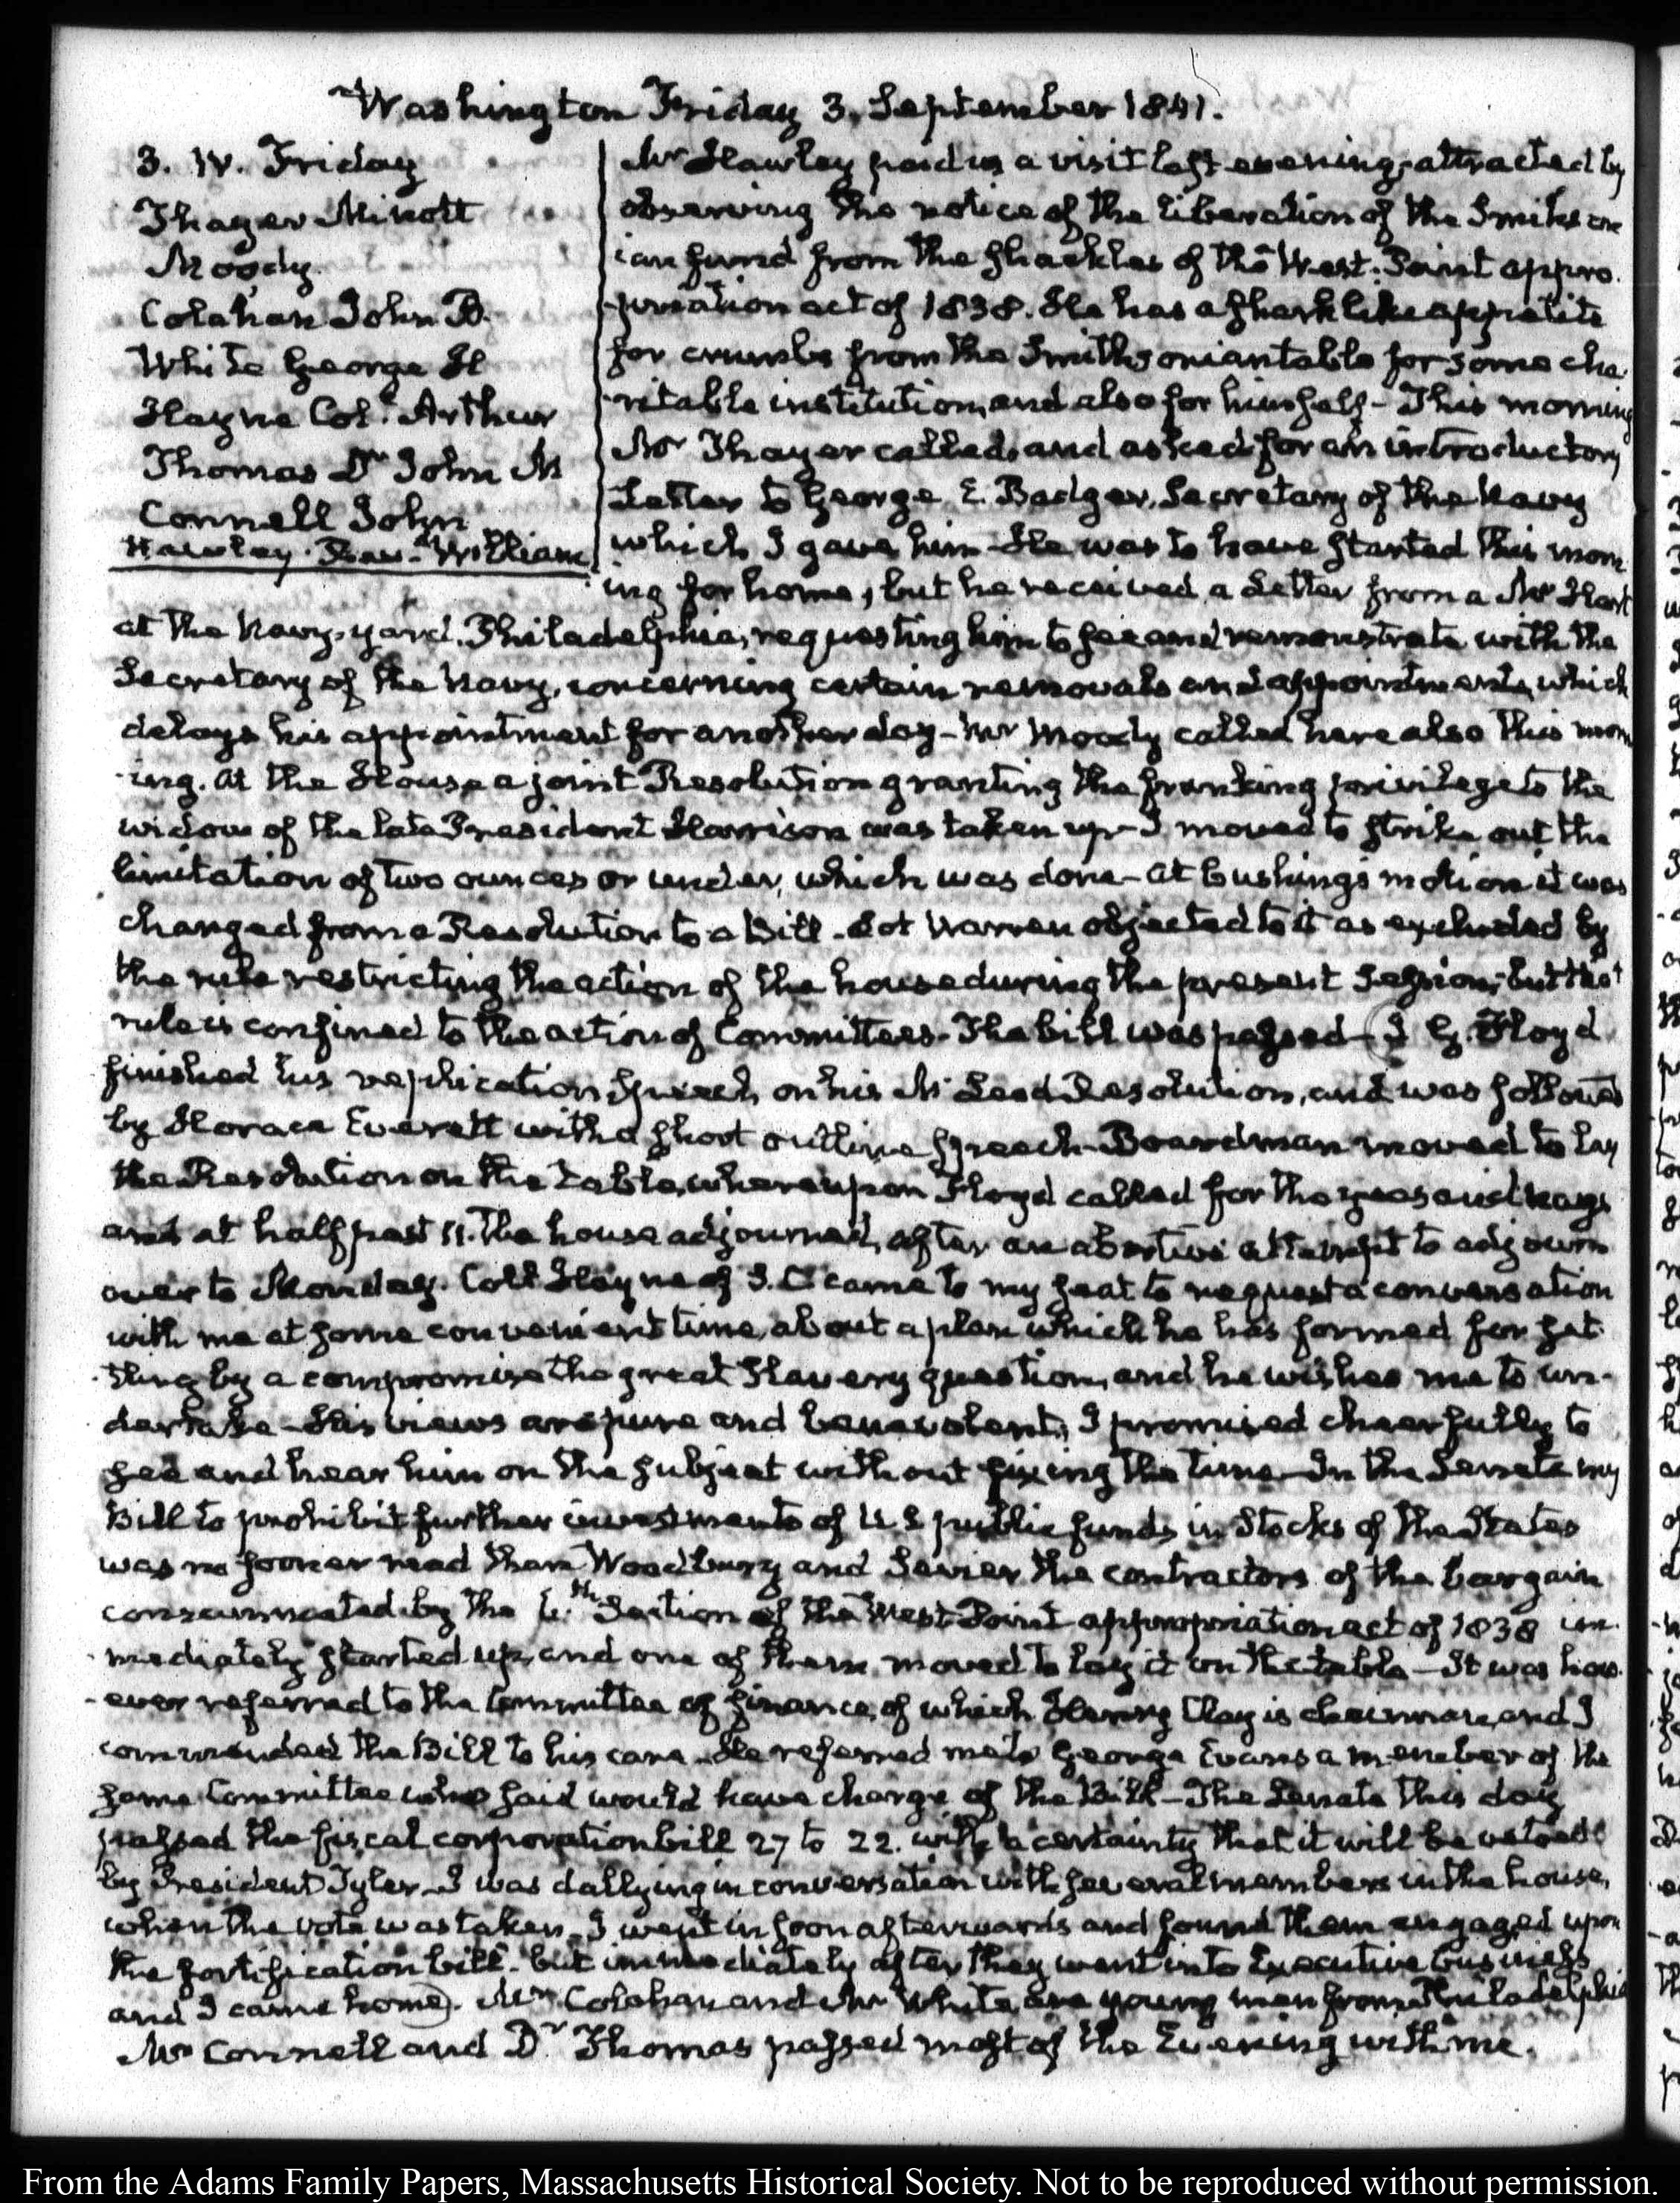 Washington Friday 3. September 1841.
3. IV. Friday
Thayer Minott
Moody
Colahan John B.
White George H
Hayne Col. Arthur
Thomas Dr John M
Connell John
Hawley Revd William
Mr Hawley paid us a visit last evening, attracted by
observing the notice of the liberation of the Smithson
ian fund from the shackles of the West-Point appro-
priation act of 1838. He has a shark like appetite
for crumbs from the Smithsonian table for some cha-
ritable institution, and also for himself - This morning
Mr Thayer called, and asked for an introductory
Letter to George E. Badger, Secretary of the Navy
which I gave him - He was to have started this morn
ing for home, but he received a Letter from a Mr Hart
at the Navy-yard, Philadelphia, requesting him to see and remonstrate with the
Secretary of the Navy, concerning certain removals and appointments, which
delays his appointment for another day - Mr Moody called here also this morn
ing. At the House a joint Resolution granting the franking privilege to the
widow of the late President Harrison was taken up - I moved to strike out the
limitation of two ounces or under, which was done - At Cushing's motion it was
changed from a Resolution to a Bill - Lot Warren objected to it as excluded by
the rule restricting the action of the house during the present Session, but that
rule is confined to the action of Committees - The bill was passed - J G. Floyd
finished his replication Speech on his McLeod Resolution, and was followed
by Horace Everett with a short outline speech - Boardman moved to lay
the Resolution on the table, whereupon Floyd called for the yeas and nays
and at half past 11. the house adjourned, after an abortive attempt to adjourn
over to Monday. Coll Hayne of S. C came to my seat to request a conversation
with me at some convenient time, about a plan which he has formed for set-
tling by a compromise the great Slavery question, and he wishes me to un-
dertake - His views are pure and benevolent, I promised cheerfully to
see and hear him on the subject without fixing the time - In the Senate my
Bill to prohibit further investments of U.S public funds in Stocks of the States
was no sooner read than Woodbury and Sevier, the contractors of the bargain
consummated by the 6.th Section of the West-Point appropriation act of 1838 im-
mediately started up, and one of them moved to lay it on the table - It was how-
ever referred to the Committee of finance, of which Henry Clay is chairman, and I
commended the Bill to his care - He referred me to George Evans a member of the
same Committee who he said would have charge of the Bill - The Senate this day
passed the fiscal corporation bill 27 to 22. with a certainty that it will be vetoed
by President Tyler - I was dallying in conversation with several members in the house,
when the vote was taken - I went in soon afterwards and found them engaged upon
the fortification bill - but immediately after they went into Executive business
and I came home. Mr Colahan and Mr White are young men from Philadelphia
Mr Connell and Dr Thomas passed most of the Evening with me.
From the Adams Family Papers, Massachusetts Historical Society. Not to be reproduced without permission.